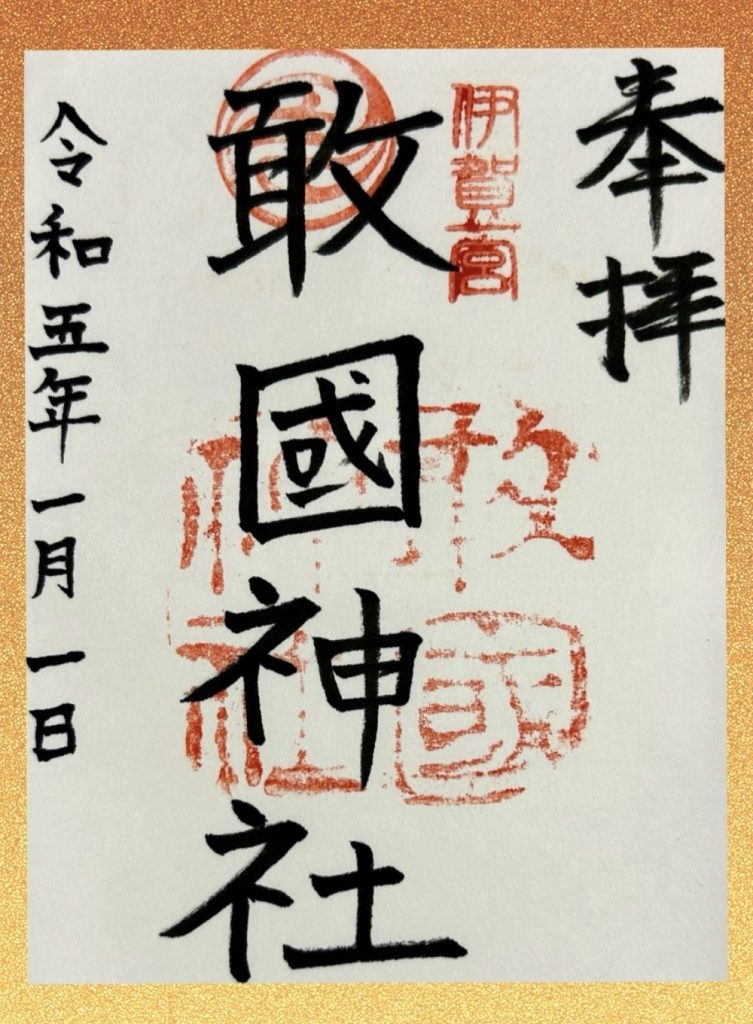 奉拝
伊賀一宮
敢國神社
令和五年一月一日